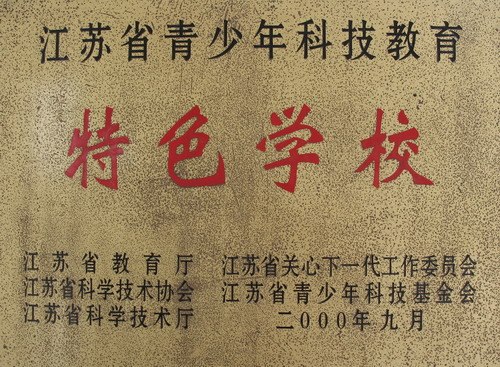 江苏省青少年科技教育
特色学校
江苏省教育厅
江苏省科学技术协会
江苏省科学技术厅
江苏省关心下一代工作委员会
江苏省青少年科技基金会
二000年九月